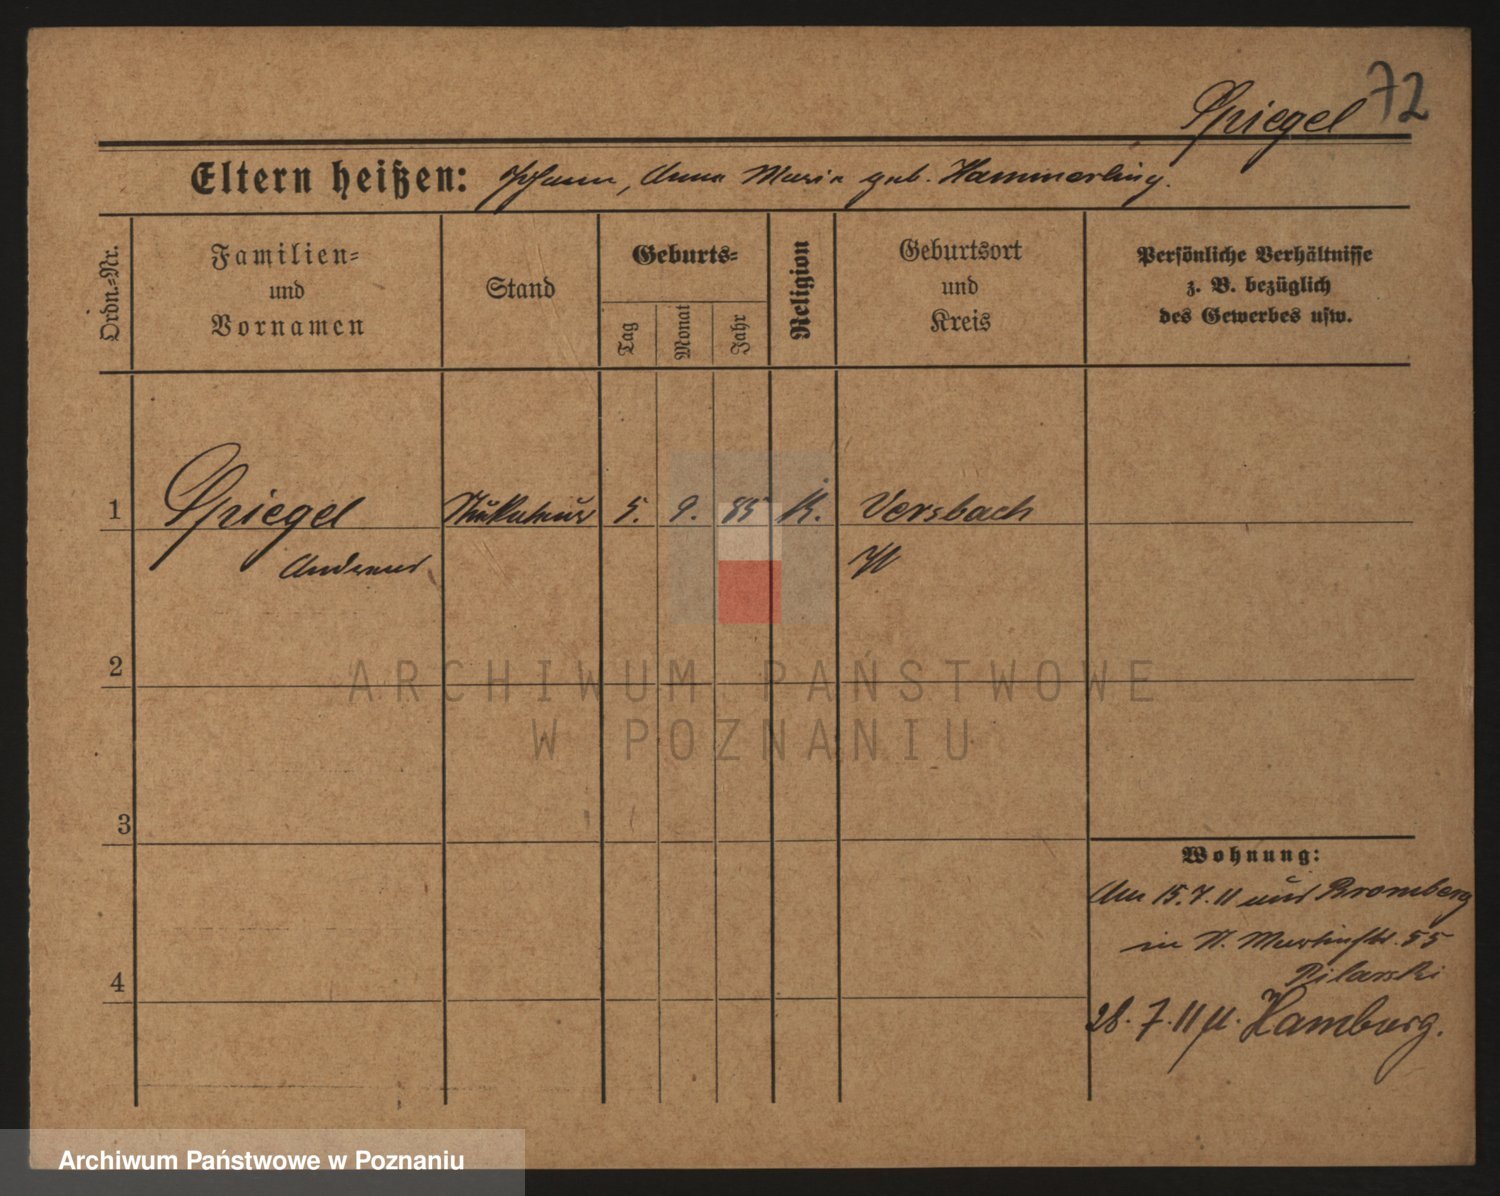 72
Spiegel
Eltern heißen: Johann, Anna Maria geb. Hammerling.
Ordn.-Nr.
Familien-
und
Vornamen
Stand
Geburts-
Tag
Monat
Jahr
Religion
Geburtsort
und
Kreis
Persönliche Verhältnisse
z. B. bezüglich
des Gewerbes usw.
1 Spiegel Stukateur 5. 9. 85 K. Versbach
Andreas
2
ARCHIWUM PAŃSTWOWE
W POZNANIU
3
4
Wohnung:
Am 15.7.11 aus Bromberg
in St. Martinstr. 55
Pilarski
28. 7. 11 Hamburg.
Archiwum Państwowe w Poznaniu